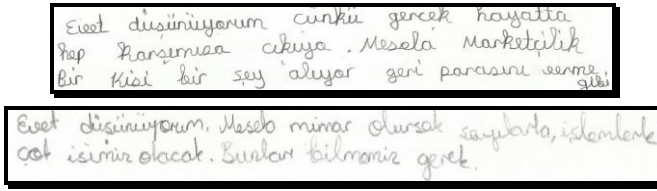 Evet düşünüyorum çünkü gerçek hayatta
hep karşımısa çıkıyo. Mesela Marketçilik
Bir Kişi bir şey alıyor geri parasını verme gibi
Evet düşünüyorum. Mesela mimar olursak sayılarla, işlemlerle
çok işimiz olacak. Bunları bilmemiz gerek.